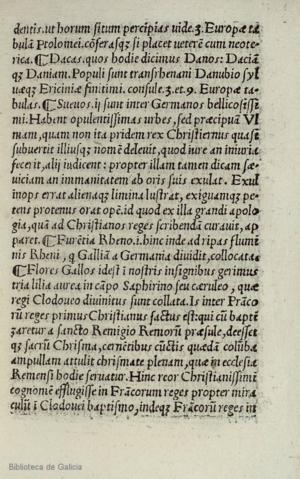 dentis. ut horum situm percipias vide. 3. Europæ ta
bulā Ptolomei. cōferasqʒ si placet veterē cum neote
rica. ¶ Dacas. quos hodie dicimus Danos: Daciā
qʒ Daniam. Populi sunt transrhenani Danubio syl
væqʒ Ericiniæ finitimi. consule. 3. et. 9. Europæ ta-
bulas. ¶ Suevos. ij sunt inter Germanos bellicosissi
mi. Habent opulentissimas urbes, sed præcipuā Vl
mam, quam non ita pridem rex Christiernus quasi
subvertit illiusqʒ nomē delevit, quod iure an iniuria
fecerit, alij indicent: propter illam tamen dicam sæ-
viciam an immanitatem ab oris suis exulat. Exul
inops errat alienaqʒ limina lustrat, exiguamqʒ pe-
tens protenus orat opē. id quod ex illa grandi apolo
gia, quā ad Christianos reges scribendā curavit, ap
paret. ¶ Furētia Rheno. i. hinc inde ad ripas flumi
nis Rheni, q Galliā a Germania dividit, collocata.
¶ Flores Gallos idest ī nostris insignibus gerimus
tria lilia aurea in cāpo Saphirino seu cæruleo, quæ
regi Clodoveo divinitus sunt collata. Is inter Frāco-
rū reges primus Christianus factus est: qui cū bapti
zaretur a sancto Remigio Remorū præsule, deesset
qʒ sacrū Chrisma, cernētibus cūctis quædā colūba
ampullam attulit chrismate plenam, quæ in ecclesia
Remensi hodie servatur. Hinc reor Christianissimi
cognomē effluxisse in Frācorum reges propter mira
culū ī Clodovei baptismo, indeqʒ Frācorū reges in
Biblioteca de Galicia